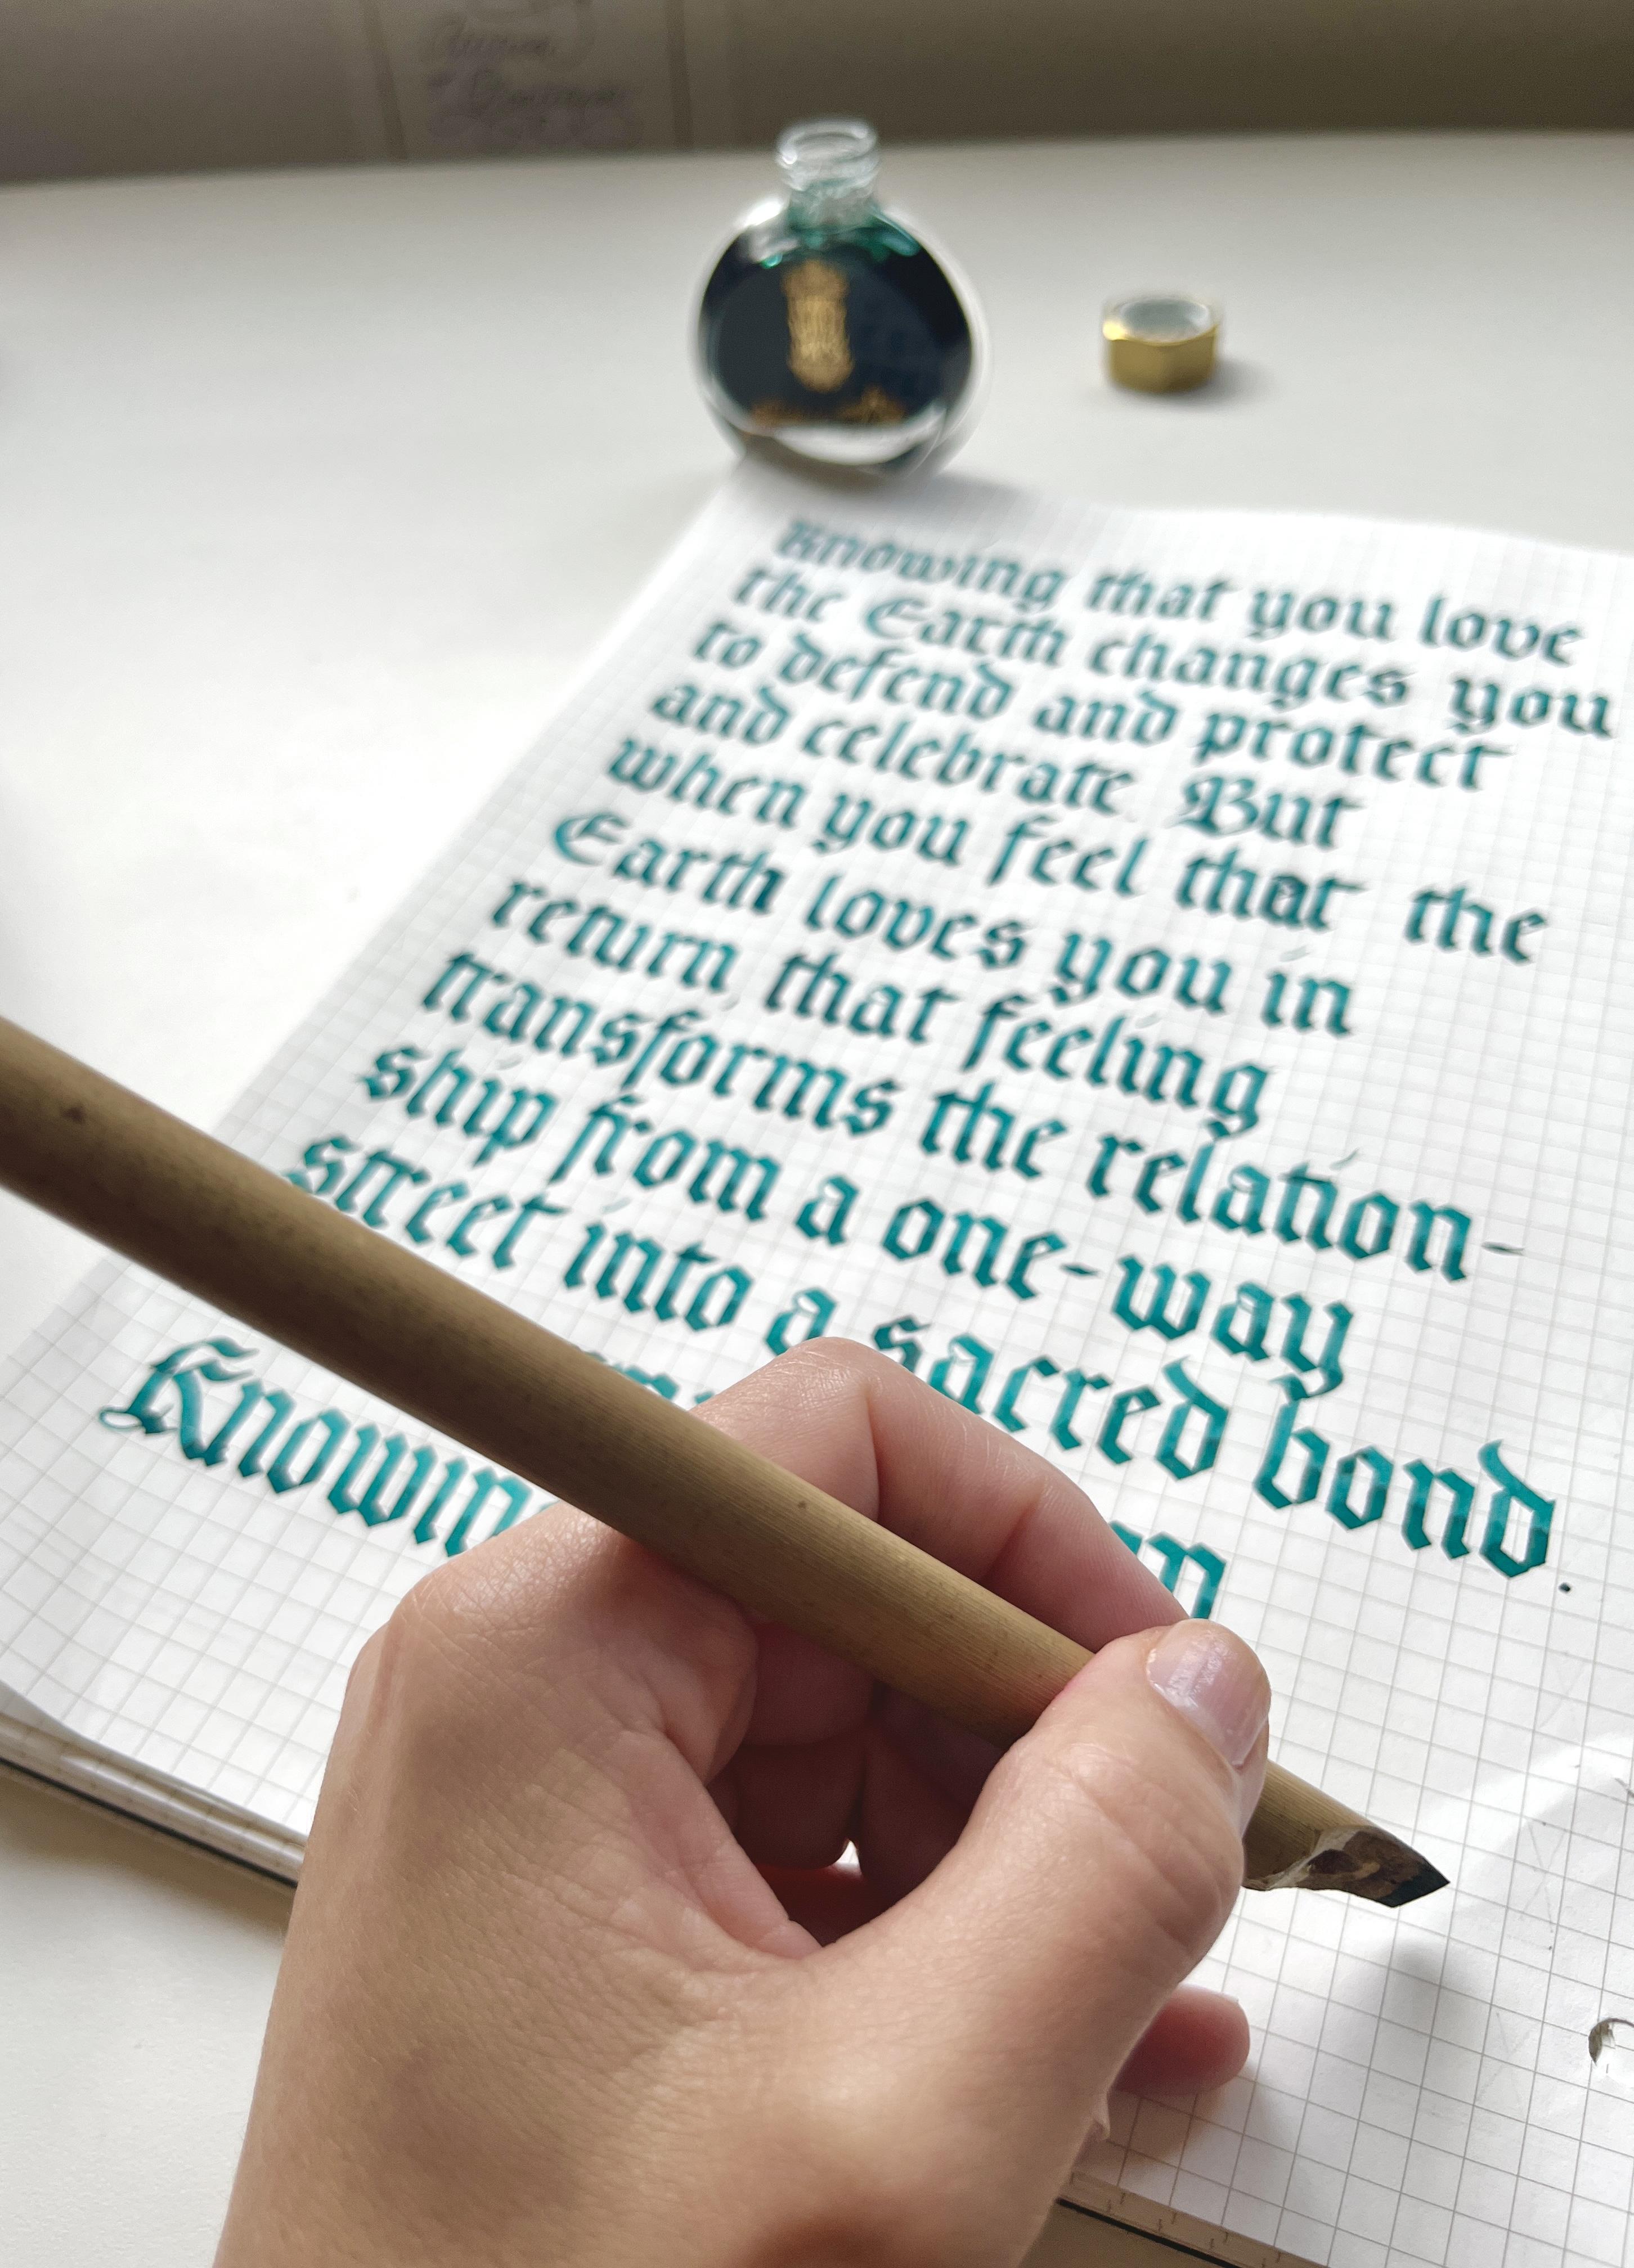 Knowing that you love
the Earth changes you
to defend and protect
and celebrate. But
when you feel that the
Earth loves you in
return, that feeling
transforms the relation-
ship from a one-way
street into a sacred bond.